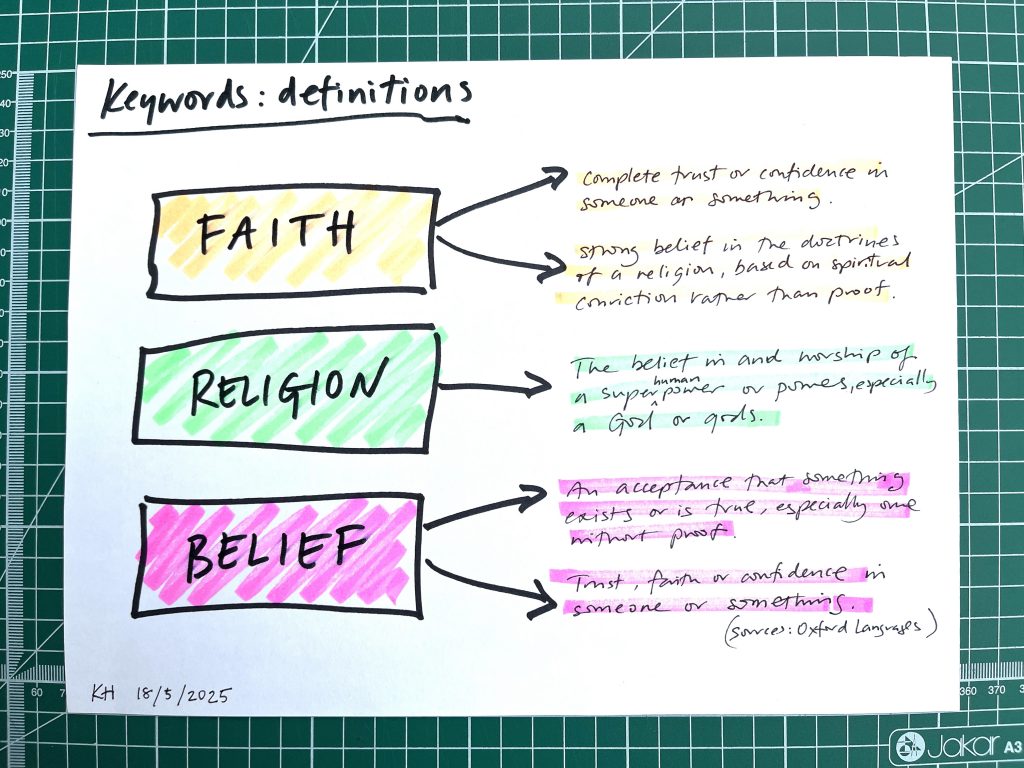 Keywords: definitions
FAITH
complete trust or confidence in
someone or something.
strong belief in the doctrines
of a religion, based on spiritual
conviction rather than proof.
RELIGION
The belief in and worship of
a superhuman power or powers, especially
a God or gods.
BELIEF
An acceptance that something
exists or is true, especially one
without proof.
Trust, faith or confidence in
someone or something.
(sources: Oxford Languages)
KH 18/5/2025
50
40
30
20
60
360 370
Jakar A3